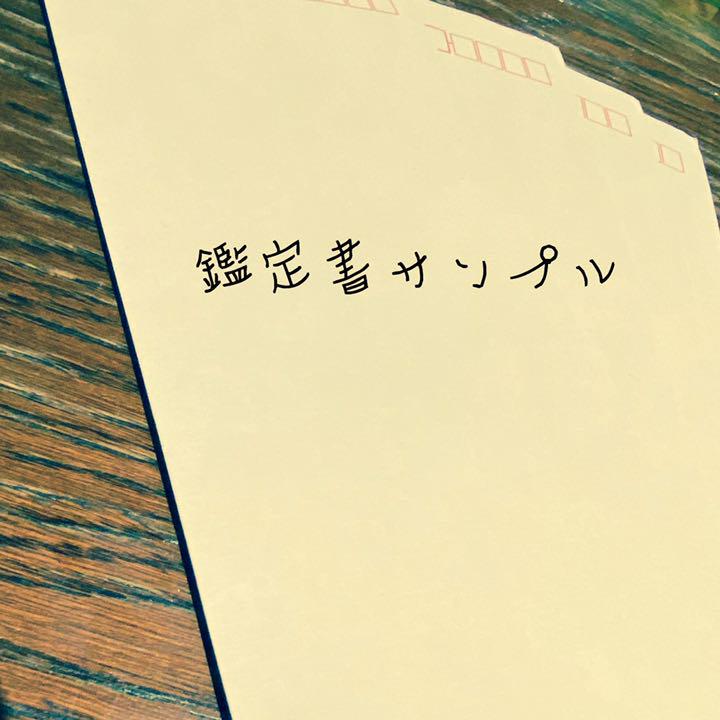 鑑定書サンプル